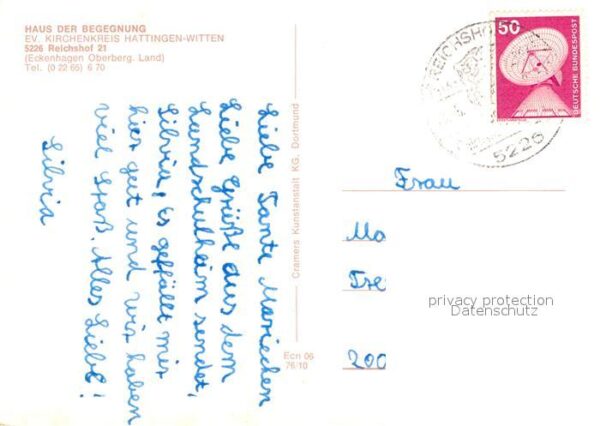 HAUS DER BEGEGNUNG
EV. KIRCHENKREIS HATTINGEN-WITTEN
5226 Reichshof 21
(Eckenhagen Oberberg. Land)
Tel. (0 22 65) 6 70
Liebe Tante Mariechen
Liebe Grüße aus dem
Landschulheim sendet,
Silvia, Es gefällt mir
hier gut und wir haben
viel Spaß. Alles Liebe!
Silvia
Cramers Kunstanstalt KG, Dortmund
Ecn 06
76/10
50
DEUTSCHE BUNDESPOST
REICHSHOF
5226
Frau
Ma
Tre
200
privacy protection
Datenschutz